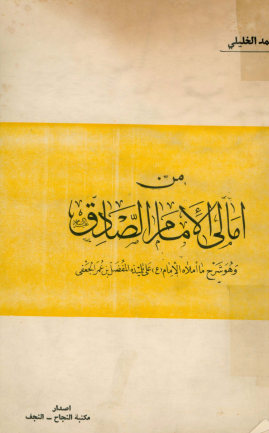 مد الخليلي
من
امالي الإمام الصادق
وهو شرح ما أملاه الإمام (ع) على تلميذه المفضل بن عمر الجعفي
اصدار
مكتبة النجاح – النجف